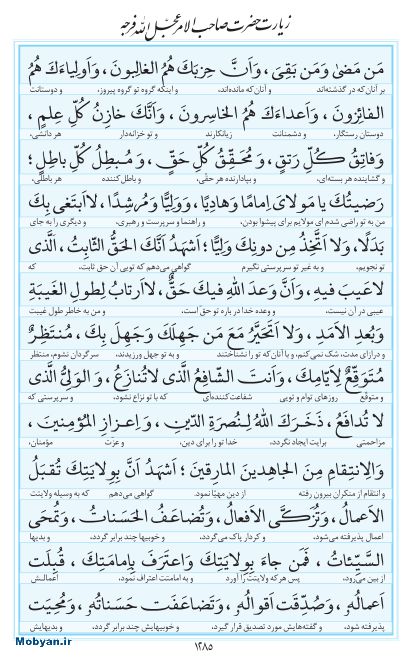 زیارت حضرت صاحب الامر عجل الله فرجه
مَن مَضىٰ وَمَن بَقِىَ ، وَاَنَّ حِزبَكَ هُمُ الغالِبونَ ، وَاَولِياءَكَ هُمُ
بر آنان که در گذشته‌اند و آنان که مانده‌اند، و اینکه گروه تو گروه پیروز، و دوستانت
الفائِزونَ ، وَاَعداءَكَ هُمُ الخاسِرونَ ، وَاَنَّكَ خازِنُ كُلِّ عِلمٍ ،
دوستان رستگار، و دشمنانت زیانکارند و تو خزانه‌دار هر دانشی،
وَفاتِقُ كُلِّ رَتقٍ ، وَ مُحَقِّقُ كُلِّ حَقٍّ ، وَ مُبطِلُ كُلِّ باطِلٍ ؛
و گشاینده هر بسته‌ای، و بپادارنده هر حقّی، و باطل کننده هر باطلی،
رَضيتُكَ يا مَولاىَ اِمامًا وَهادِيًا ، وَوَلِيًّا وَمُرشِدًا ، لا اَبتَغى بِكَ
من به تو راضی شدم ای مولایم برای پیشوا بودن، و راهنما و سرپرست و رهبری، و دیگری را به جای
بَدَلًا ، وَلا اَتَّخِذُ مِن دونِكَ وَلِيًّا ؛ اَشهَدُ اَنَّكَ الحَقُّ الثّابِتُ ، الَّذى
تو نجویم، و به غیر تو سرپرستی نگیرم گواهی می‌دهم که تویی آن حق ثابت، که
لا عَيبَ فيهِ ، وَاَنَّ وَعدَ اللهِ فيكَ حَقٌّ ، لا اَرتابُ لِطولِ الغَيبَةِ
عیبی در آن نیست، و وعده خدا در باره تو حق است، و من به خاطر طول غیبت
وَبُعدِ الاَمَدِ ، وَلا اَتَحَيَّرُ مَعَ مَن جَهِلَكَ وَجَهِلَ بِكَ ، مُنتَظِرٌ
و درازای مدت، شک نمی‌کنم، و با آنان که تو را نشناختند و به تو جهل ورزیدند، سرگردان نشوم، منتظر
مُتَوَقِّعٌ لِاَيّامِكَ ، وَاَنتَ الشّافِعُ الَّذى لا تُنازَعُ ، وَ الوَلِىُّ الَّذى
و متوقع روزهای توام و تویی شفاعت کننده‌ای که با تو نزاع نشود، و سرپرستی که
لا تُدافَعُ ، ذَخَرَكَ اللهُ لِنُصرَةِ الدّينِ ، وَاِعزازِ المُؤمِنينَ ،
مزاحمتی برایت ایجاد نگردد، خدا تو را برای دین، و عزّت مؤمنان،
وَالاِنتِقامِ مِنَ الجاحِدينَ المارِقينَ ؛ اَشهَدُ اَنَّ بِوِلايَتِكَ تُقبَلُ
و انتقام از منکران بیرون رفته از دین مهیّا نمود. گواهی می‌دهم که به وسیله ولایتت
الاَعمالُ ، وَتُزَكَّى الاَفعالُ ، وَتُضاعَفُ الحَسَناتُ ، وَتُمحَى
اعمال پذیرفته می‌شود، و کردار پاک می‌گردد، و خوبیها چند برابر گردد، و بدیها
السَّيِّئاتُ ، فَمَن جاءَ بِوِلايَتِكَ وَاعتَرَفَ بِاِمامَتِكَ ، قُبِلَت
از بین می‌رود. پس هر که ولایتت را آورد و به امامتت اعتراف نمود، اعمالش
اَعمالُهُ ، وَصُدِّقَت اَقوالُهُ ، وَتَضاعَفَت حَسَناتُهُ ، وَمُحِيَت
پذیرفته شود، و گفته‌هایش مورد تصدیق قرار گیرد، و خوبیهایش چند برابر گردد، و بدیهایش
۱۲۸۵
Mobyan.ir